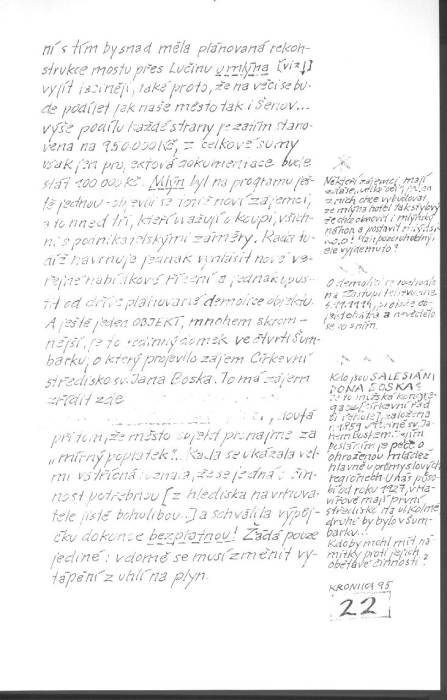 ní s tím by snad měla plánovaná rekon-
strukce mostu přes Lučinu u mlýna [viz↓]
vyjít laciněji, také proto, že na věci se bu-
de podílet jak naše město tak i Šenov...
výše podílu každé strany je zatím stano-
vena na 950 000 Kč, z celkové sumy
však jen projektová dokumentace bude
stát 100 000 Kč. Mlýn byl na programu ješ-
tě jednou - objevili se totiž noví zájemci,
a to hned tři, kteří uvažují o koupi, všich-
ni s podnikatelskými záměry. Rada tu-
díž navrhuje jednak vyhlásit nové ve-
řejné nabídkové řízení a jednak upus-
tit od dříve plánované demolice objektu.
A ještě jeden OBJEKT, mnohem skrom-
nější, je to rodinný domek ve čtvrti Šum-
barku, o který projevilo zájem Církevní
středisko sv. Jana Boska. To má zájem
zřídit zde
, doufá
při tom, že město objekt pronajme za
„mírný poplatek“. Rada se ukázala vel-
mi vstřícná uznala, že se jedná o čin-
nost potřebnou [z hlediska navrhova-
tele jistě bohulibou..] a schválila výpůj-
čku dokonce bezplatnou! Žádá pouze
jediné: v domě se musí změnit vy-
tápění z uhlí na plyn.
Někteří zájemci mají
z nich, chce vybudovat
ze mlýna hotel tak stylový
že chce obnovit i mlýnský
náhon a postavit i mlýnské
kolo! Plán pozoruhodný,
ale vyjde mu to?
O demolici se rozhodlo
na Zastupitelstvu dne
se to s ním.
Kdo jsou SALESIÁNI
DONA BOSKA?
Je to mužská kongre-
gace [církevní řád
či řehole], založená
r. 1859 v Turíně sv. Ja-
nem Boskem. Jejím
posláním je péče o
ohroženou mládež
hlavně v průmyslových
regionech. U nás působ-
bí od roku 1927, v Ha-
vířově mají první
středisko
druhé by bylo v Šum-
barku.
Kdo by mohl mít ná-
mitky proti jejich
obětavé činnosti?
KRONIKA 95
22